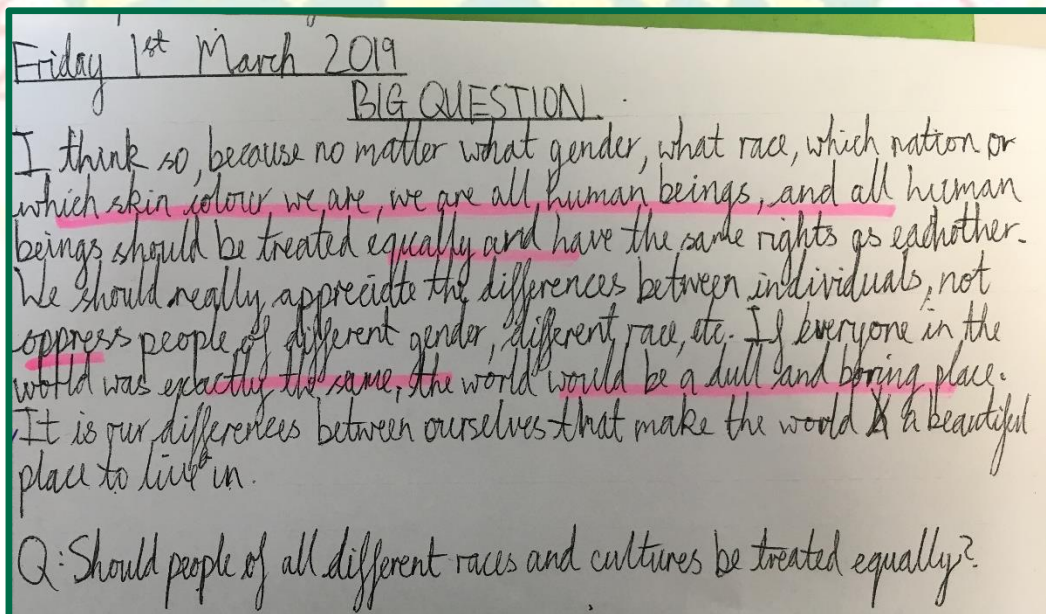 Friday 1st March 2019
BIG QUESTION.
I think so, because no matter what gender, what race, which nation or
which skin colour we are, we are all human beings, and all human
beings should be treated equally and have the same rights as eachother.
We should really appreciate the differences between individuals, not
oppress people of different gender, different race, etc. If everyone in the
world was exactly the same, the world would be a dull and boring place.
It is our differences between ourselves that make the world a beautiful
place to live in.
Q: Should people of all different races and cultures be treated equally?